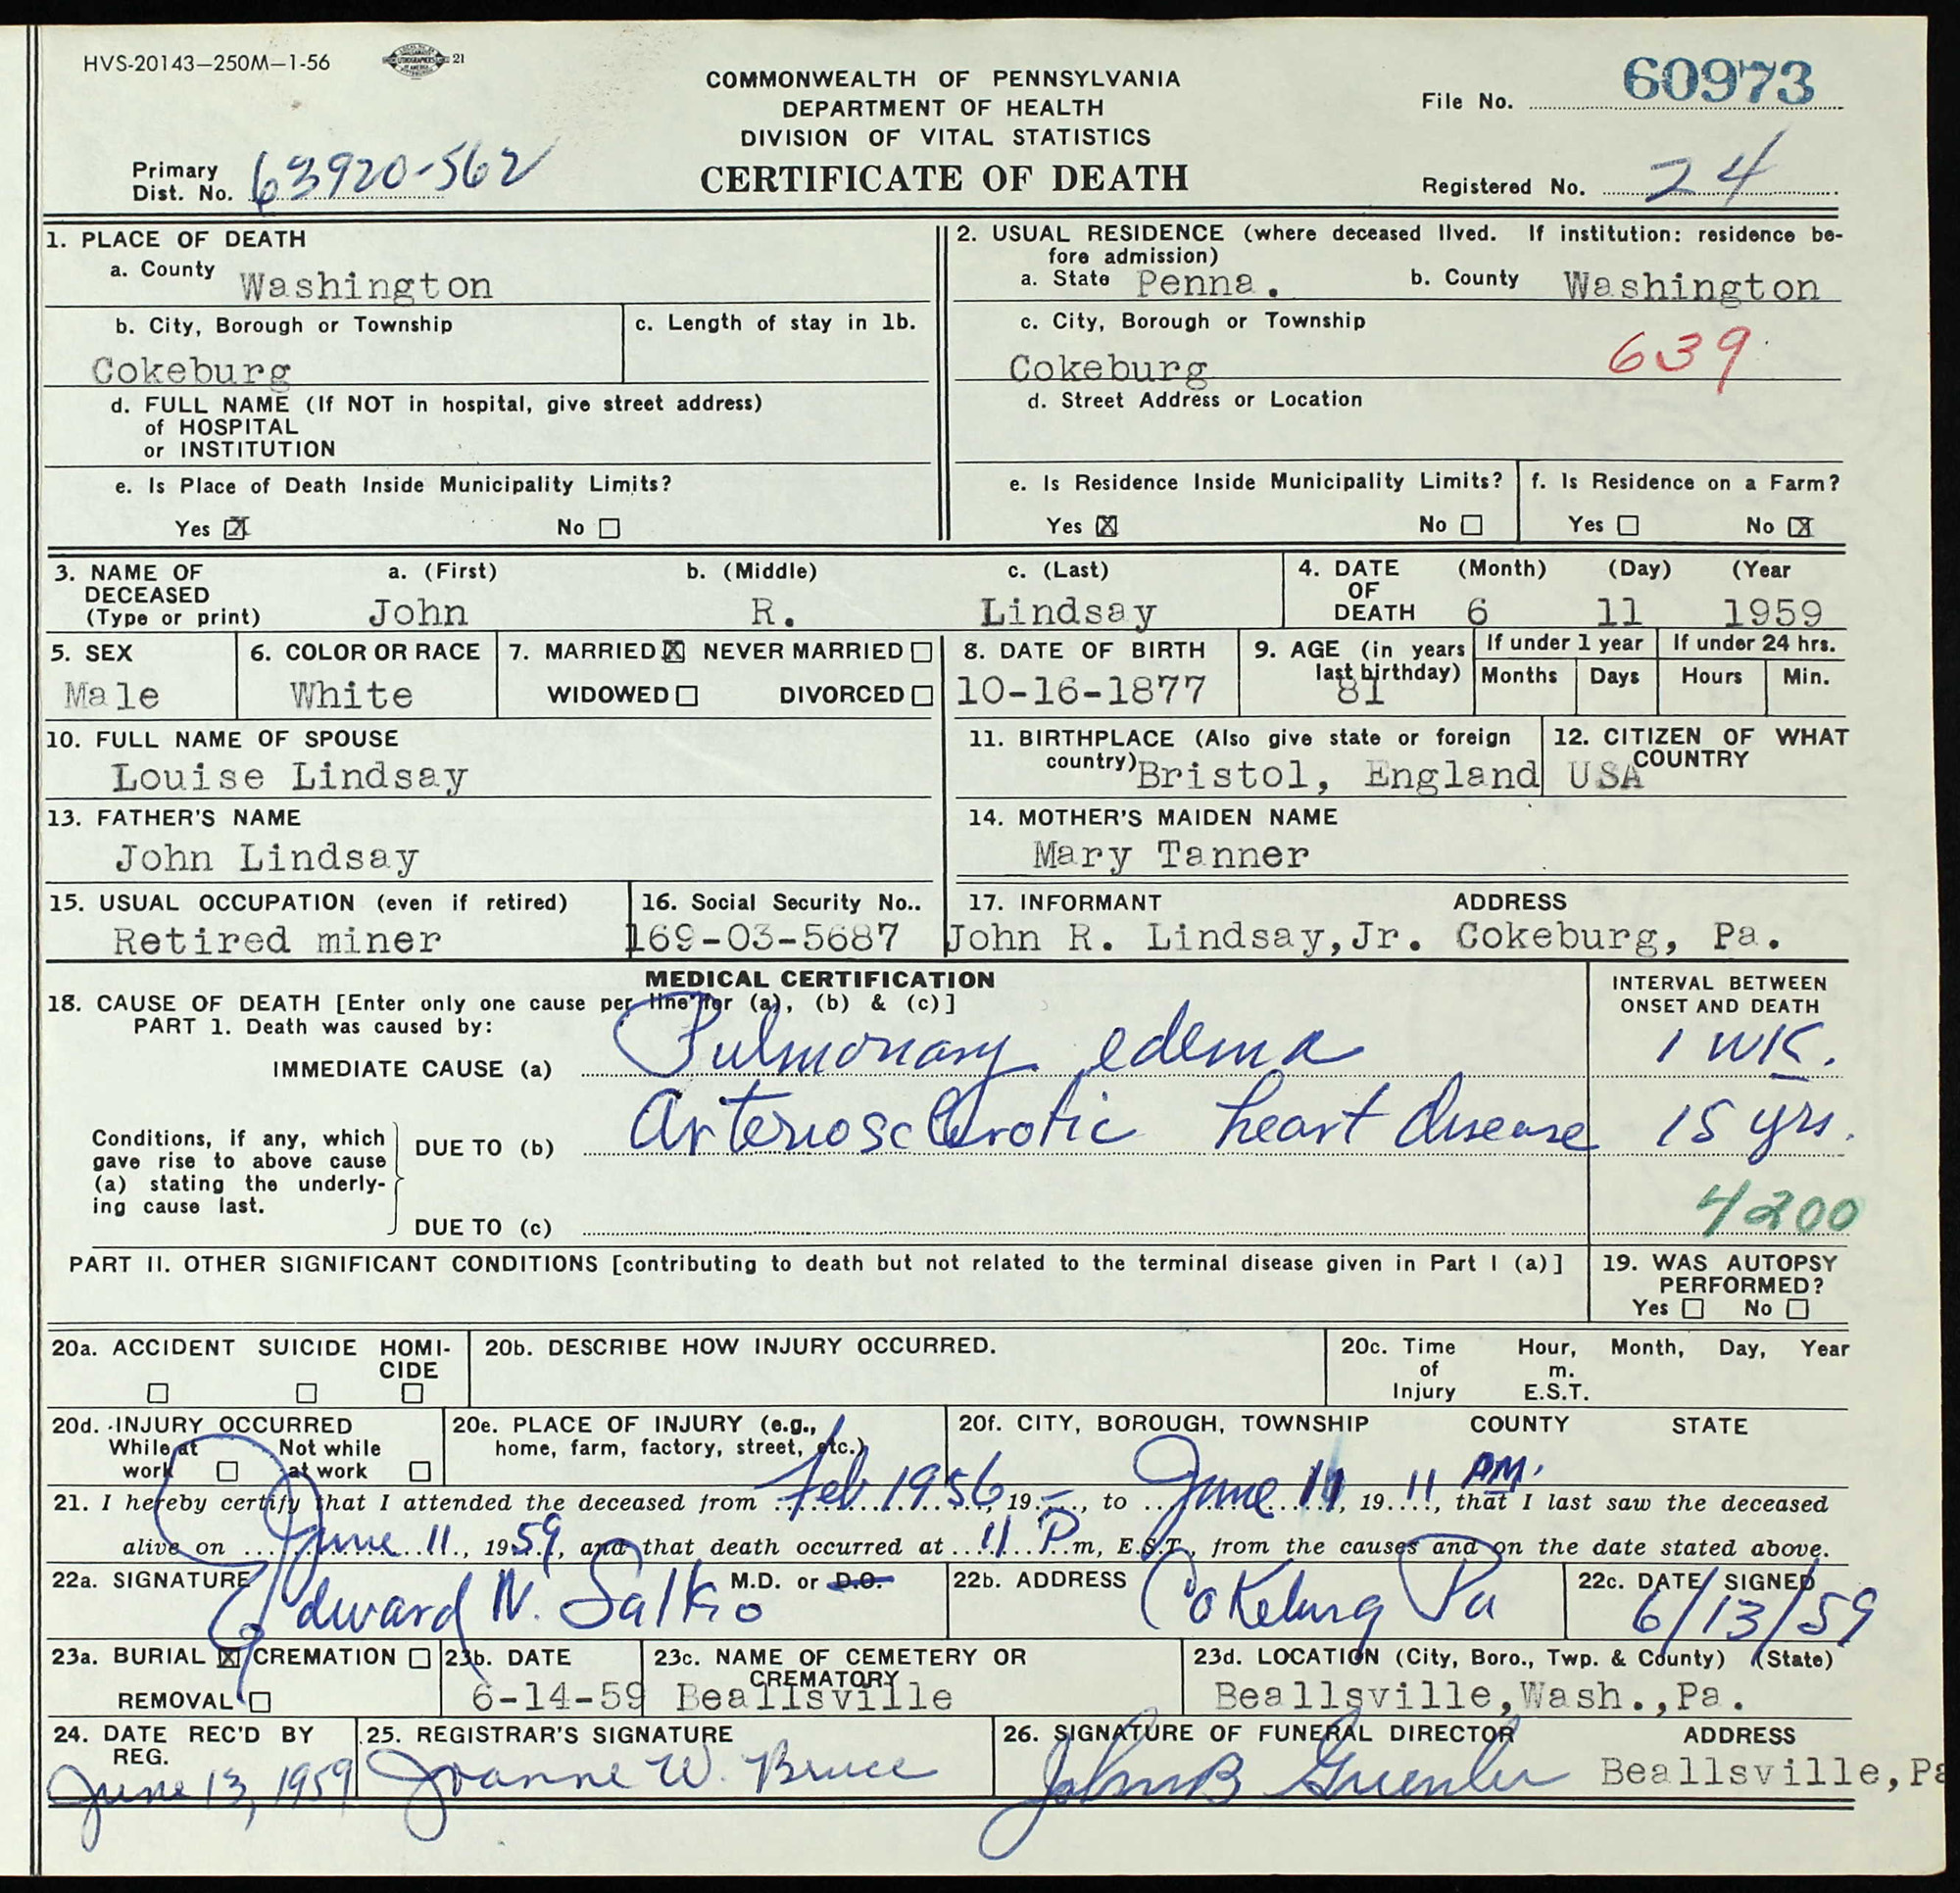 HVS-20143-250M-1-56 21
COMMONWEALTH OF PENNSYLVANIA
DEPARTMENT OF HEALTH
DIVISION OF VITAL STATISTICS
CERTIFICATE OF DEATH
File No. 60973
Primary Dist. No. 63920-562
Registered No. 24
1. PLACE OF DEATH
a. County Washington
b. City, Borough or Township
Cokeburg
c. Length of stay in 1b.
d. FULL NAME (If NOT in hospital, give street address)
of HOSPITAL
or INSTITUTION
e. Is Place of Death Inside Municipality Limits?
Yes ☒ No ☐
2. USUAL RESIDENCE (where deceased lived. If institution: residence be-
fore admission)
a. State Penna. b. County Washington
c. City, Borough or Township
Cokeburg 639
d. Street Address or Location
e. Is Residence Inside Municipality Limits?
Yes ☒ No ☐
f. Is Residence on a Farm?
Yes ☐ No ☒
3. NAME OF DECEASED (Type or print)
a. (First) b. (Middle) c. (Last)
John R. Lindsay
4. DATE OF DEATH (Month) (Day) (Year
6 11 1959
5. SEX
Male
6. COLOR OR RACE
White
7. MARRIED ☒ NEVER MARRIED ☐
WIDOWED ☐ DIVORCED ☐
8. DATE OF BIRTH
10-16-1877
9. AGE (in years last birthday)
81
If under 1 year
Months Days
If under 24 hrs.
Hours Min.
10. FULL NAME OF SPOUSE
Louise Lindsay
11. BIRTHPLACE (Also give state or foreign country)
Bristol, England
12. CITIZEN OF WHAT COUNTRY
USA
13. FATHER'S NAME
John Lindsay
14. MOTHER'S MAIDEN NAME
Mary Tanner
15. USUAL OCCUPATION (even if retired)
Retired miner
16. Social Security No..
169-03-5687
17. INFORMANT ADDRESS
John R. Lindsay,Jr. Cokeburg, Pa.
MEDICAL CERTIFICATION
18. CAUSE OF DEATH [Enter only one cause per line for (a), (b) & (c)]
INTERVAL BETWEEN
ONSET AND DEATH
PART 1. Death was caused by:
IMMEDIATE CAUSE (a) Pulmonary edema 1 WK.
Conditions, if any, which
gave rise to above cause
(a) stating the underly-
ing cause last.
DUE TO (b) Arteriosclerotic heart disease 15 yrs.
4200
DUE TO (c)
PART II. OTHER SIGNIFICANT CONDITIONS [contributing to death but not related to the terminal disease given in Part I (a)]
19. WAS AUTOPSY
PERFORMED?
Yes ☐ No ☐
20a. ACCIDENT SUICIDE HOMI-
CIDE
☐ ☐ ☐
20b. DESCRIBE HOW INJURY OCCURRED.
20c. Time of Injury Hour, Month, Day, Year
m.
E.S.T.
20d. INJURY OCCURRED
While at work ☐ Not while at work ☐
20e. PLACE OF INJURY (e.g.,
home, farm, factory, street, etc.)
20f. CITY, BOROUGH, TOWNSHIP COUNTY STATE
21. I hereby certify that I attended the deceased from Feb 1956, 19 –, to June 11, 19 11 PM., that I last saw the deceased
alive on June 11, 1959, and that death occurred at 11 P.m, E.S.T., from the causes and on the date stated above.
22a. SIGNATURE
Edward N. Salko M.D. or D.O.
22b. ADDRESS
Cokeburg Pa
22c. DATE SIGNED
6/13/59
23a. BURIAL ☒ CREMATION ☐
REMOVAL ☐
23b. DATE
6-14-59
23c. NAME OF CEMETERY OR
CREMATORY
Beallsville
23d. LOCATION (City, Boro., Twp. & County) (State)
Beallsville,Wash.,Pa.
24. DATE REC'D BY
REG.
June 13, 1959
25. REGISTRAR'S SIGNATURE
Joanne W. Bruce
26. SIGNATURE OF FUNERAL DIRECTOR ADDRESS
John B Beallsville, Pa